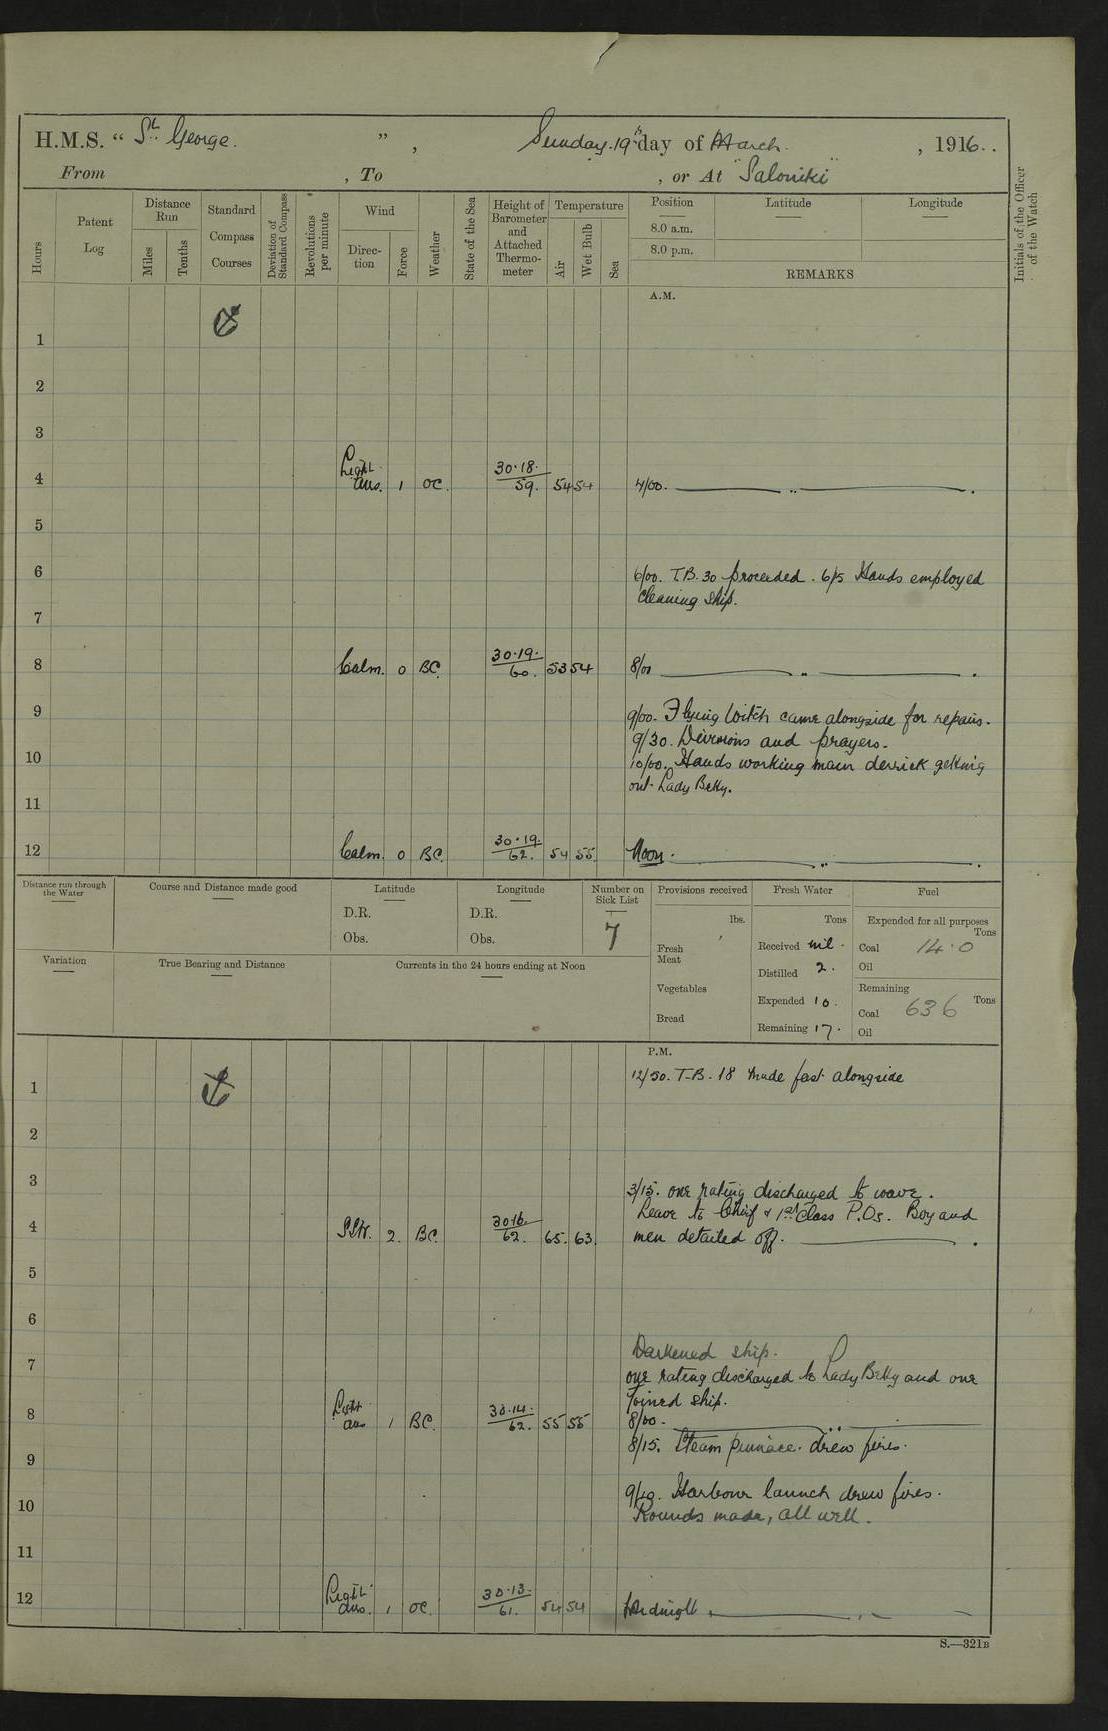 H.M.S. " St. George. ", Sunday. 19th day of March. , 1916..
From , To , or At "Saloniki"
Hours
Patent Log
Distance Run
Miles
Tenths
Standard Compass Courses
Deviation of Standard Compass
Revolutions per minute
Wind
Direction
Force
Weather
State of the Sea
Height of Barometer and Attached Thermometer
Temperature
Air
Wet Bulb
Sea
Position
8.0 a.m.
8.0 p.m.
Latitude
Longitude
REMARKS
Initials of the Officer of the Watch
A.M.
1
2
3
4 Light airs. 1 OC. 30.18. 59. 54 54 4/00. ,,
5
6 6/00. T.B. 30 proceeded. 6/15 Hands employed
cleaning ship.
7
8 Calm. 0 BC. 30.19. 60. 53 54 8/00 ,,
9 9/00. Flying Witch came alongside for repairs.
9/30. Divisions and prayers.
10 10/00. Hands working main derrick getting
out Lady Betty.
11
12 Calm. 0 BC. 30.19. 62. 54 55 Noon. ,,
Distance run through the Water
Course and Distance made good
Latitude
D.R.
Obs.
Longitude
D.R.
Obs.
Number on Sick List
7
Provisions received
lbs.
Fresh Meat
Vegetables
Bread
Fresh Water
Tons
Received nil.
Distilled 2.
Expended 10.
Remaining 17.
Fuel
Expended for all purposes
Tons
Coal 14.0
Oil
Remaining
Coal 636 Tons
Oil
Variation
True Bearing and Distance
Currents in the 24 hours ending at Noon
P.M.
1 12/50. T-B-18 made fast alongside
2
3 3/15. one rating discharged to wave.
Leave to Chief & 1st Class P.Os. Boy and
4 SSW. 2. BC. 30.16. 62. 65. 63. men detailed off.
5
6
Darkened ship.
7 one rating discharged to Lady Betty and one
joined ship.
8 Light airs 1 BC. 30.14. 62. 55 55 8/00. ,,
8/15. Steam pinnace. drew fires.
9
9/40. Harbour launch drew fires.
10 Rounds made, all well.
11
12 Light airs. 1 OC. 30.13. 61. 54 54 Midnight ,,
S.—321B